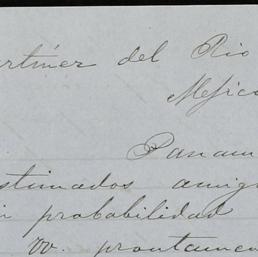 artinez del Rio
Mejico
Panam
stimados amig
probabilidad
vv. prontamen